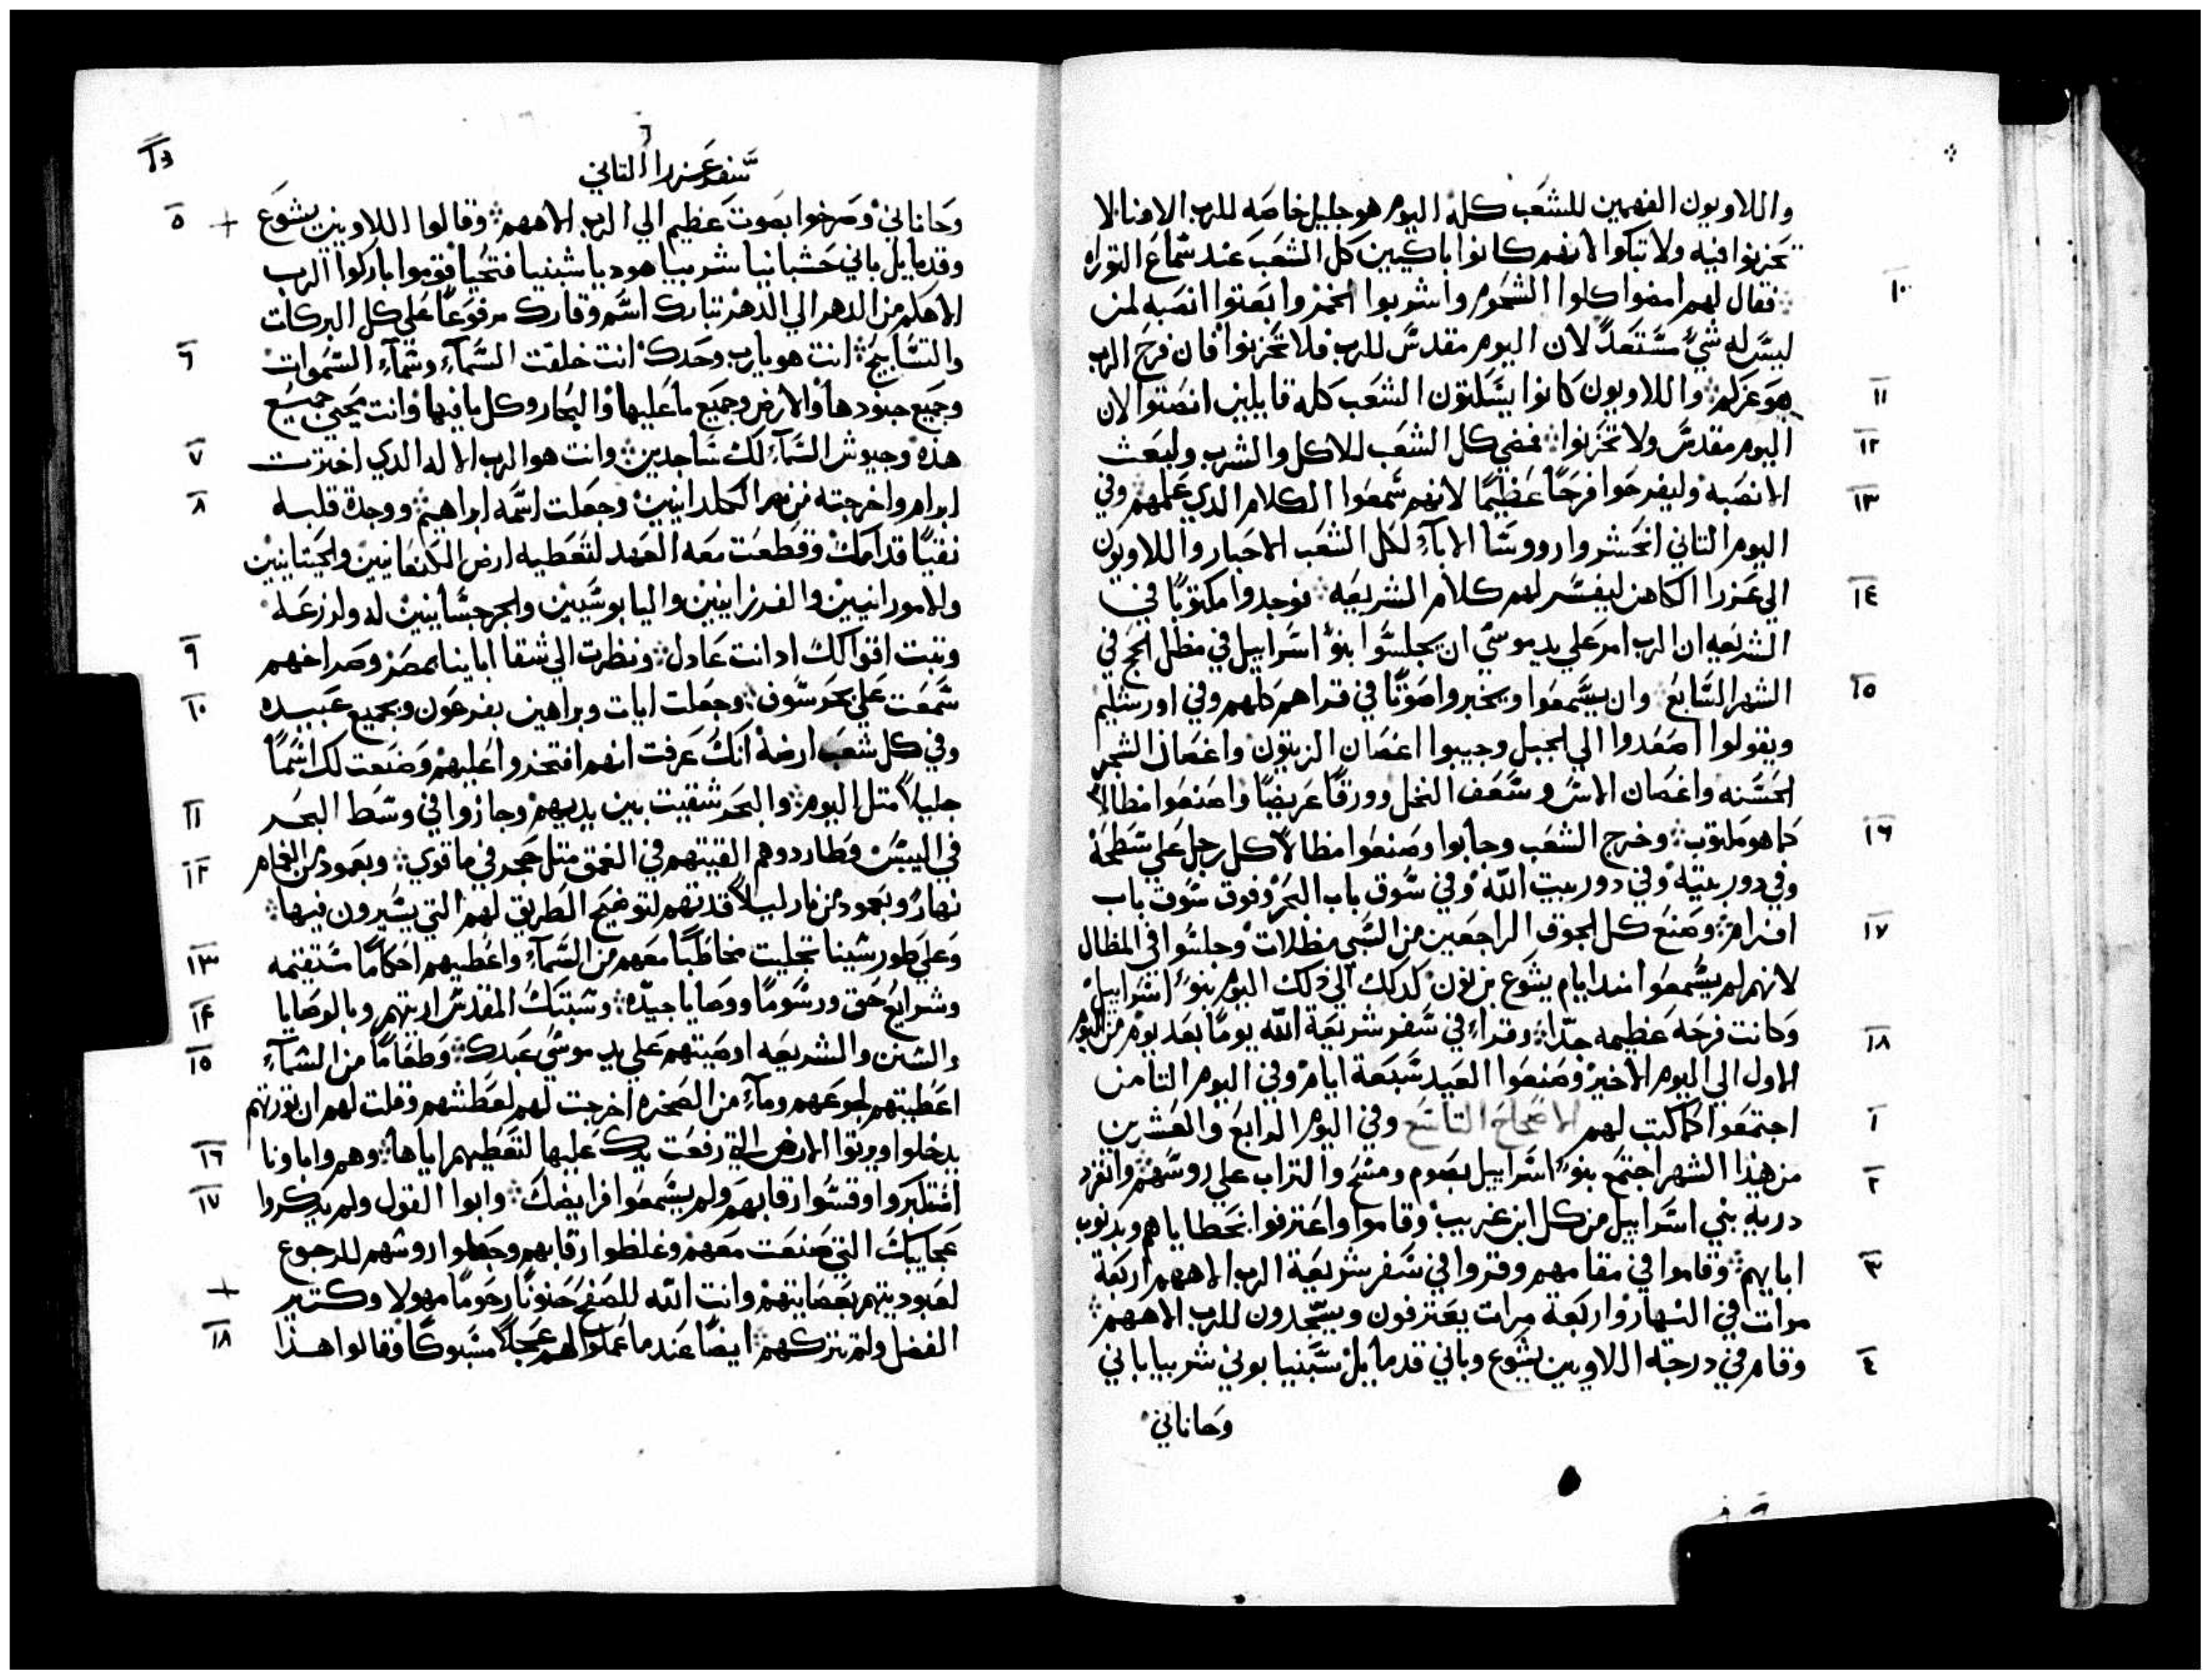 واللاويون الفهمين للشعب كله اليوم هو جليل خاصه للرب الاهنا لا
تحزنوا فيه ولا تبكوا لانهم كانوا باكيين كل الشعب عند سماع التوراه
١٠ فقال لهم امضوا كلوا الشحوم واشربوا الخمر وابعتوا انصبه لمن
ليس له شيء مستعد لان اليوم مقدس للرب فلا تحزنوا فان فرح الرب
١١ هو عزكم واللاويون كانوا يسكتون الشعب كله قايلين انصتوا لان
١٢ اليوم مقدس ولا تحزنوا فمضي كل الشعب للاكل والشرب ولبعث
١٣ الانصبه وليفرحوا فرحًا عظيمًا لانهم سمعوا الكلام الدي علمهم وفي
اليوم التاني انحشروا رووسا الاباء لكل الشعب الاحبار واللاويون
١٤ الي عزرا الكاهن ليفسر لهم كلام الشريعه فوجدوا مكتوبًا في
الشريعه ان الرب امر علي يد موسي ان يجلسوا بنو اسراييل في مظل الحج في
١٥ الشهر السابع وان يسمعوا ويخبروا صوتًا في قراهم كلهم وفي اورشليم
ويقولوا اصعدوا الي الجبل وجيبوا اغصان الزيتون واغصان الشجر
الحسنه واغصان الاس وسعف النخل وورقًا عريضًا واصنعوا مظالًا
١٦ كما هو مكتوب وخرج الشعب وجابوا وصنعوا مظالًا كل رجل علي سطحه
وفي دور بيته وفي دور بيت الله وفي سوق باب البحر وفوق سوق باب
١٧ افرام وصنع كل الجوق الراجعين من السبي مظلات وجلسوا في المظال
لانهم لم يسمعوا مند ايام يشوع بن نون كدلك الي دلك اليوم بنو اسراييل
١٨ وكانت فرحه عظيمه جدًا وقراء في سفر شريعة الله يومًا بعد يوم من اليوم
الاول الي اليوم الاخير وصنعوا العيد سبعة ايام وفي اليوم التامن
١ اجتمعوا كما كتب لهم الاصحاح التاسع وفي اليوم الرابع والعشرين
٢ من هذا الشهر اجتمع بنو اسراييل بصوم ومسح والتراب علي روسهم وانفرد
درية بني اسراييل من كل ابن غريب وقاموا واعترفوا بخطاياهم وبدنوب
٣ ابايهم وقاموا في مقامهم وقروا في سفر شريعة الرب الاههم اربعة
مرات في النهار واربعة مرات يعترفون ويسجدون للرب الاههم
٤ وقام في درجة اللاويين يشوع وباني قدمايل شبنيا بوني شربيا باني
وحاناني
سفر عزرا التاني
٥ وحاناني وصرخوا بصوت عظيم الي الرب الاههم وقالوا اللاويين يشوع
وقدمايل باني حشبانيا شربيا هوديا شبنيا فتحيا قوموا باركوا الرب
الاهكم من الدهر الي الدهر تبارك اسم وقارك مرفوعًا علي كل البركات
٦ والتسابيح انت هو يارب وحدك انت خلقت السماء وسماء السموات
وجميع جنودها والارض وجميع ما عليها والبحار وكل ما فيها وانت تحيي جميع
٧ هذه وجيوش السماء لك ساجدين وانت هو الرب الاله الدي اخترت
٨ ابرام واخرجته من نهر الكلدانيين وجعلت اسمه ابراهيم ووجدة قلبه
نقيًا قدامك وقطعت معه العهد لتعطيه ارض الكنعانيين والحيتانيين
والامورانيين والفرزانيين واليابوسيين والجرجسانيين له ولزرعه
٩ وتبت اقوالك اد انت عادل ونظرت الي شقا اباينا بمصر وصراخهم
١٠ سمعت علي بحر سوف وجعلت ايات وبراهين بفرعون وبجميع عبيده
وفي كل شعب ارضه انك عرفت انهم افتخروا عليهم وصنعت لك اسمًا
١١ جليلًا متل اليوم والبحر شقيت بين يديهم وجازوا في وسط البحر
١٢ في اليبس وطاردوهم القيتهم في الغمق متل حجر في ما قوي وبعمود من الغمام
نهارًا وبعمود من نار ليلًا قدتهم لتوضيح الطريق لهم التي يسيرون فيها
١٣ وعلي طور سينا تجليت مخاطبًا معهم من السماء واعطيهم احكامًا مستقيمه
١٤ وشرايع حق ورسومًا ووصايا جيده وسبتك المقدس اريتهم وبالوصايا
١٥ والسنن والشريعه اوصيتهم علي يد موسي عبدك وطعامًا من السماء
اعطيتهم لجوعهم وماء من الصخره اخرجت لهم لعطشهم وقلت لهم ان تورتهم
١٦ يدخلوا ويرتوا الارض التي رفعت يدك عليها لتعطيهم اياها وهم واباونا
١٧ استكبروا وقسوا رقابهم ولم يسمعوا فرايضك وابوا القول ولم يدكروا
عجايبك التي صنعت معهم وغلظوا رقابهم وجعلوا روسهم للرجوع
لعبوديتهم بعصايتهم وانت الله للصفح حنونًا رحومًا مهولا وكتير
١٨ الفضل ولم تتركهم ايضًا عندما عملوا لهم عجلًا مسبوكًا وقالوا هذا